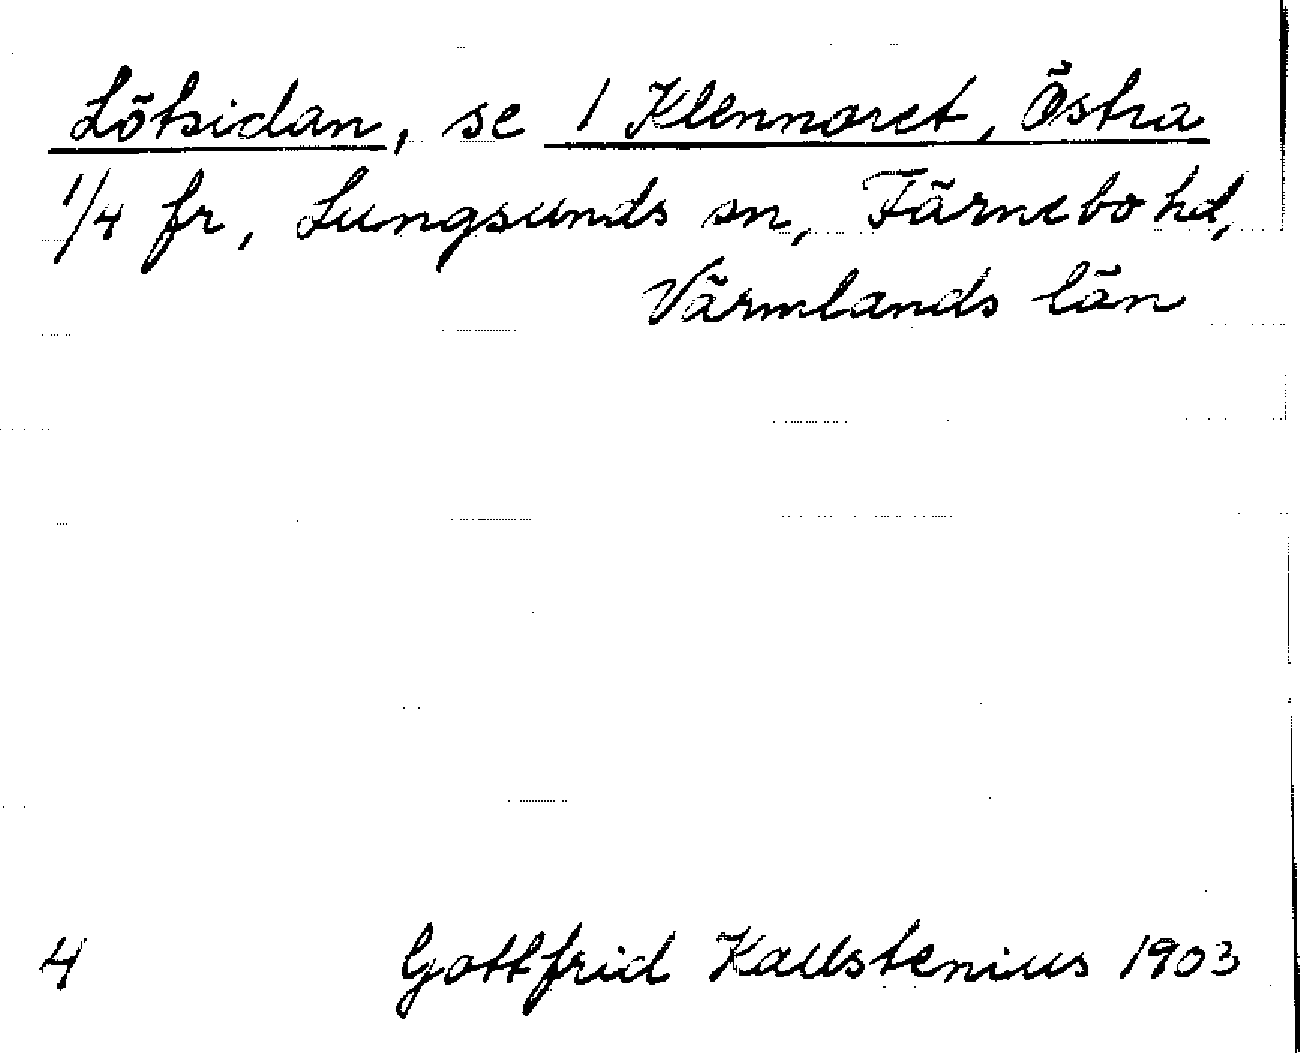 Lötsidan, se 1 Klennoret, Östra
1/4 fr, Lungsunds sn, Färnebo hd,
Värmlands län
4 Gottfrid Kallstenius 1903